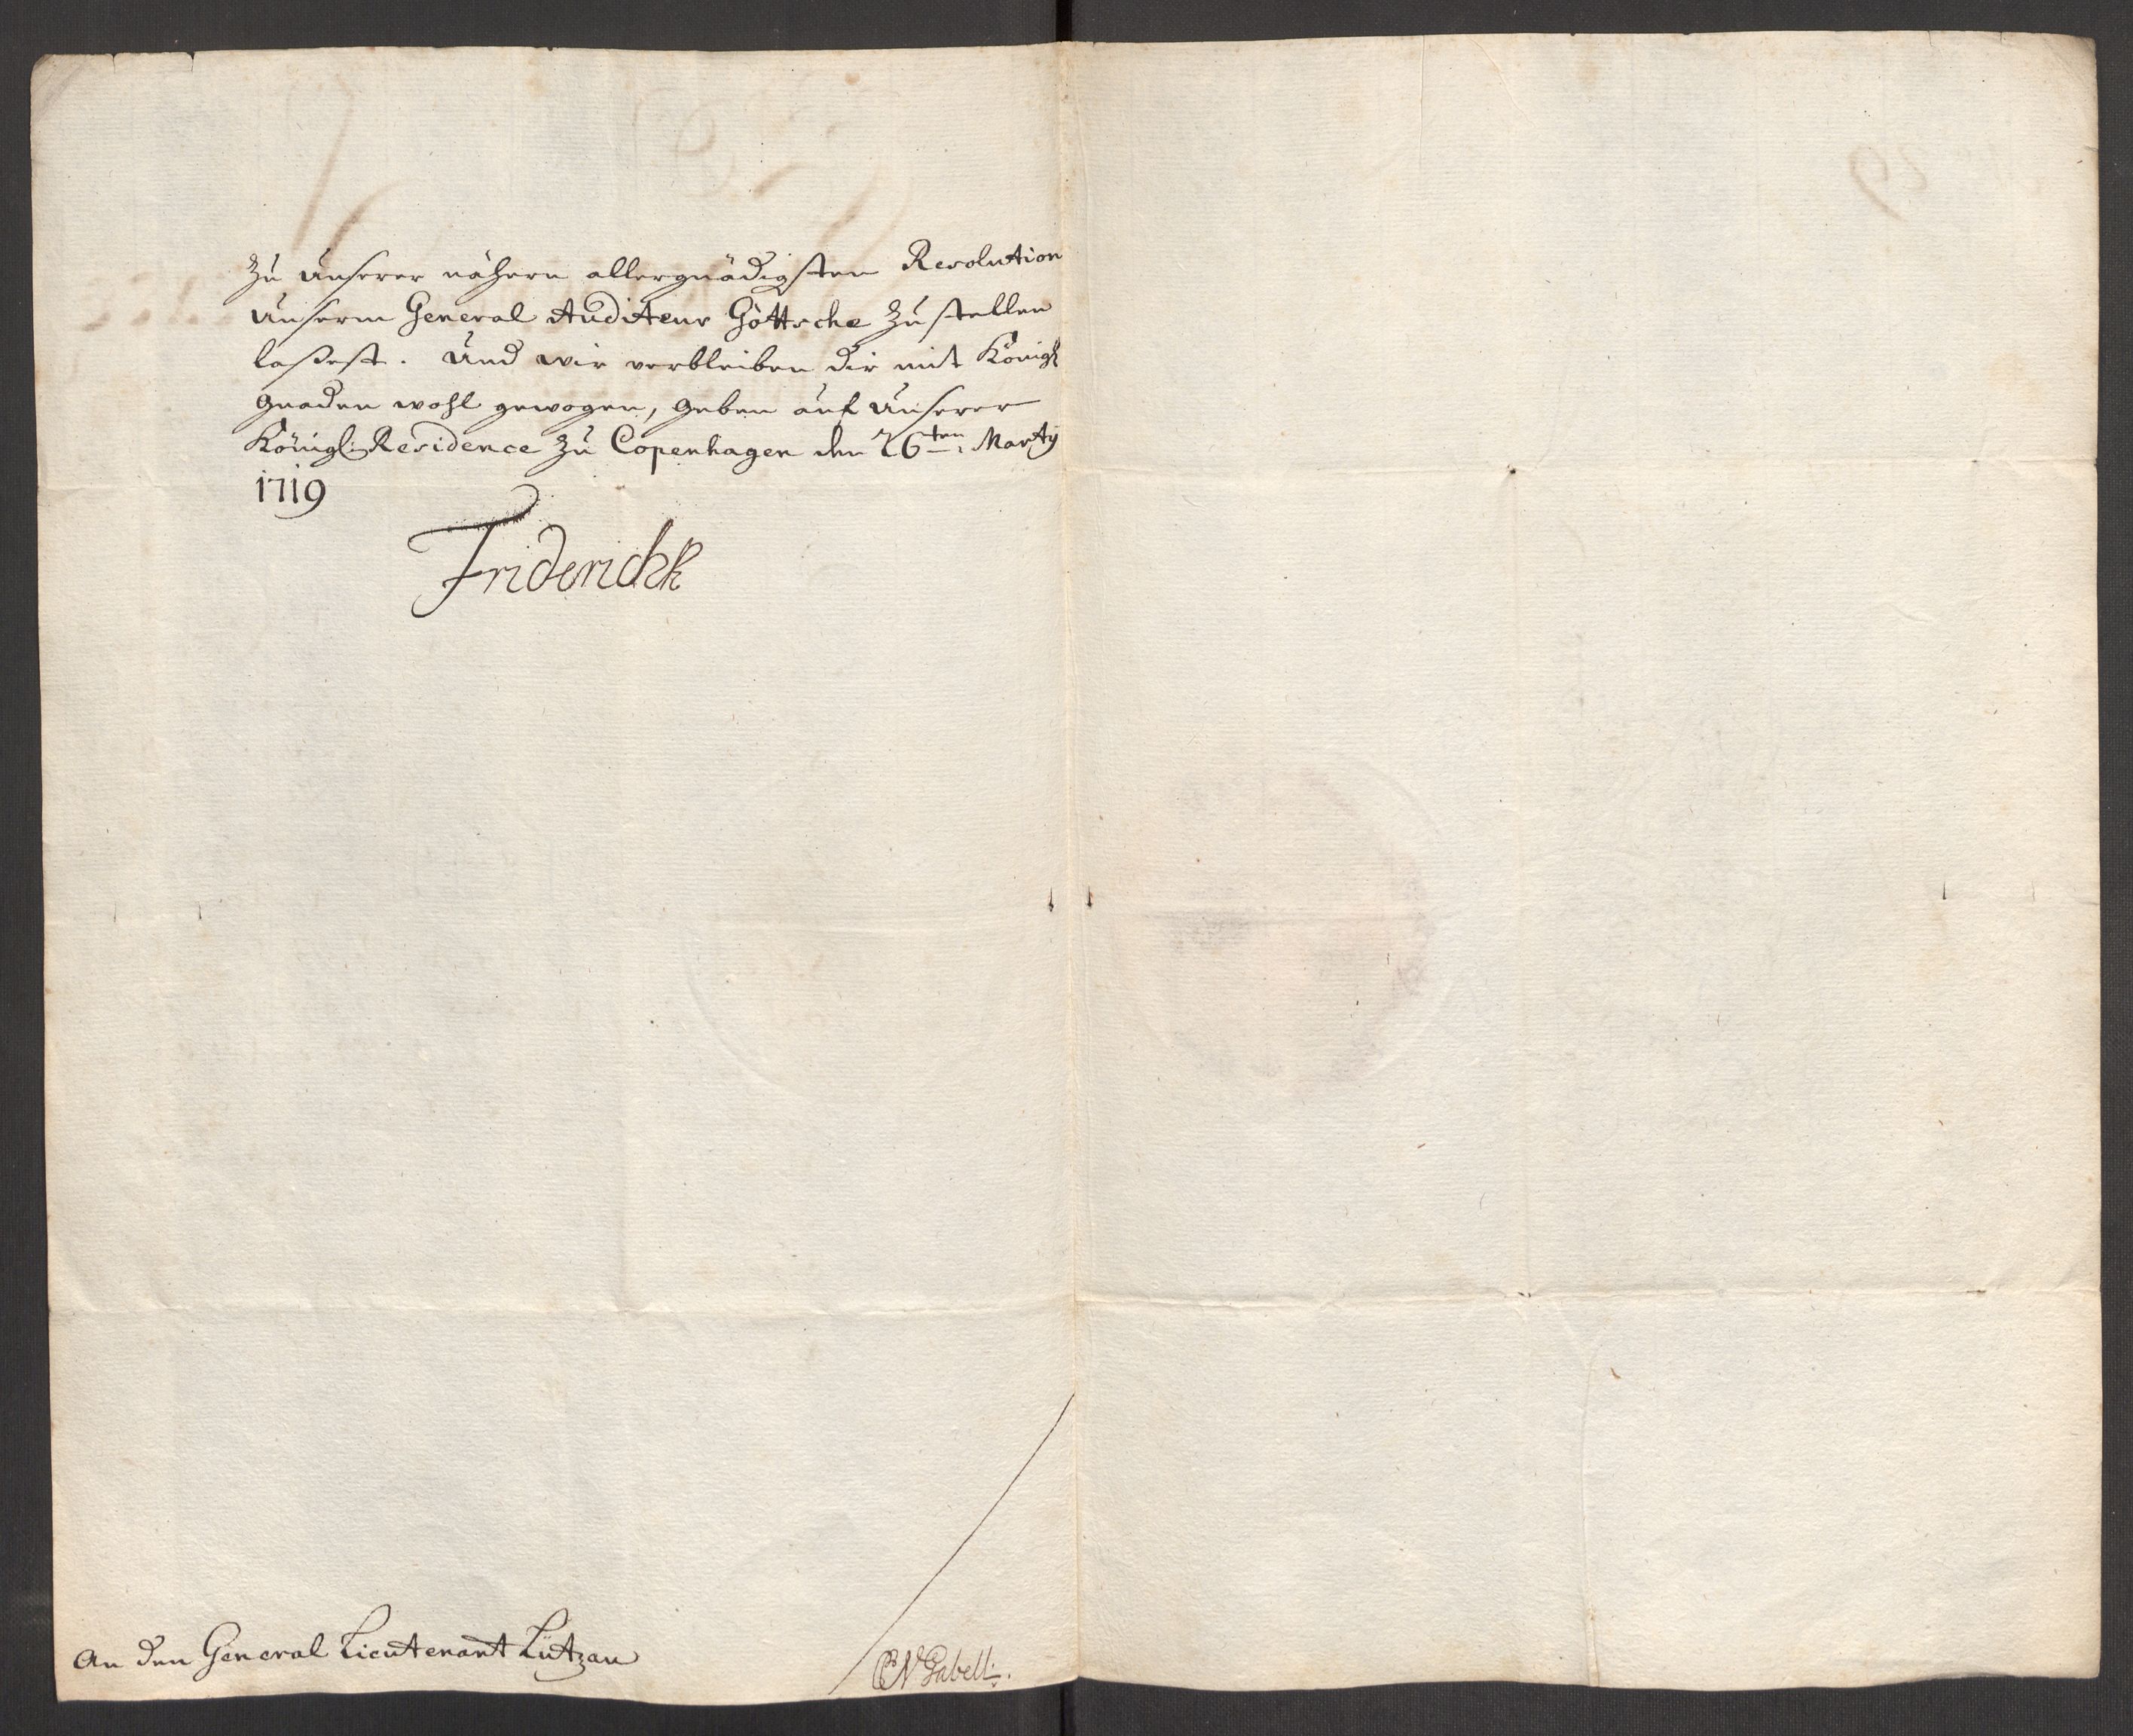 Zu Unserer nähern allergnädigsten Resolution
Unserm General Auditeur Göttsche zustellen
laßest. Und wir verbleiben dir mit Königl
gnaden wohl gewogen, Geben auf Unserer
Königl: Residence zu Copenhagen den 26ten Martÿ
1719
Friderich R
An den General Lieutenant Lützau
CN Gabell.